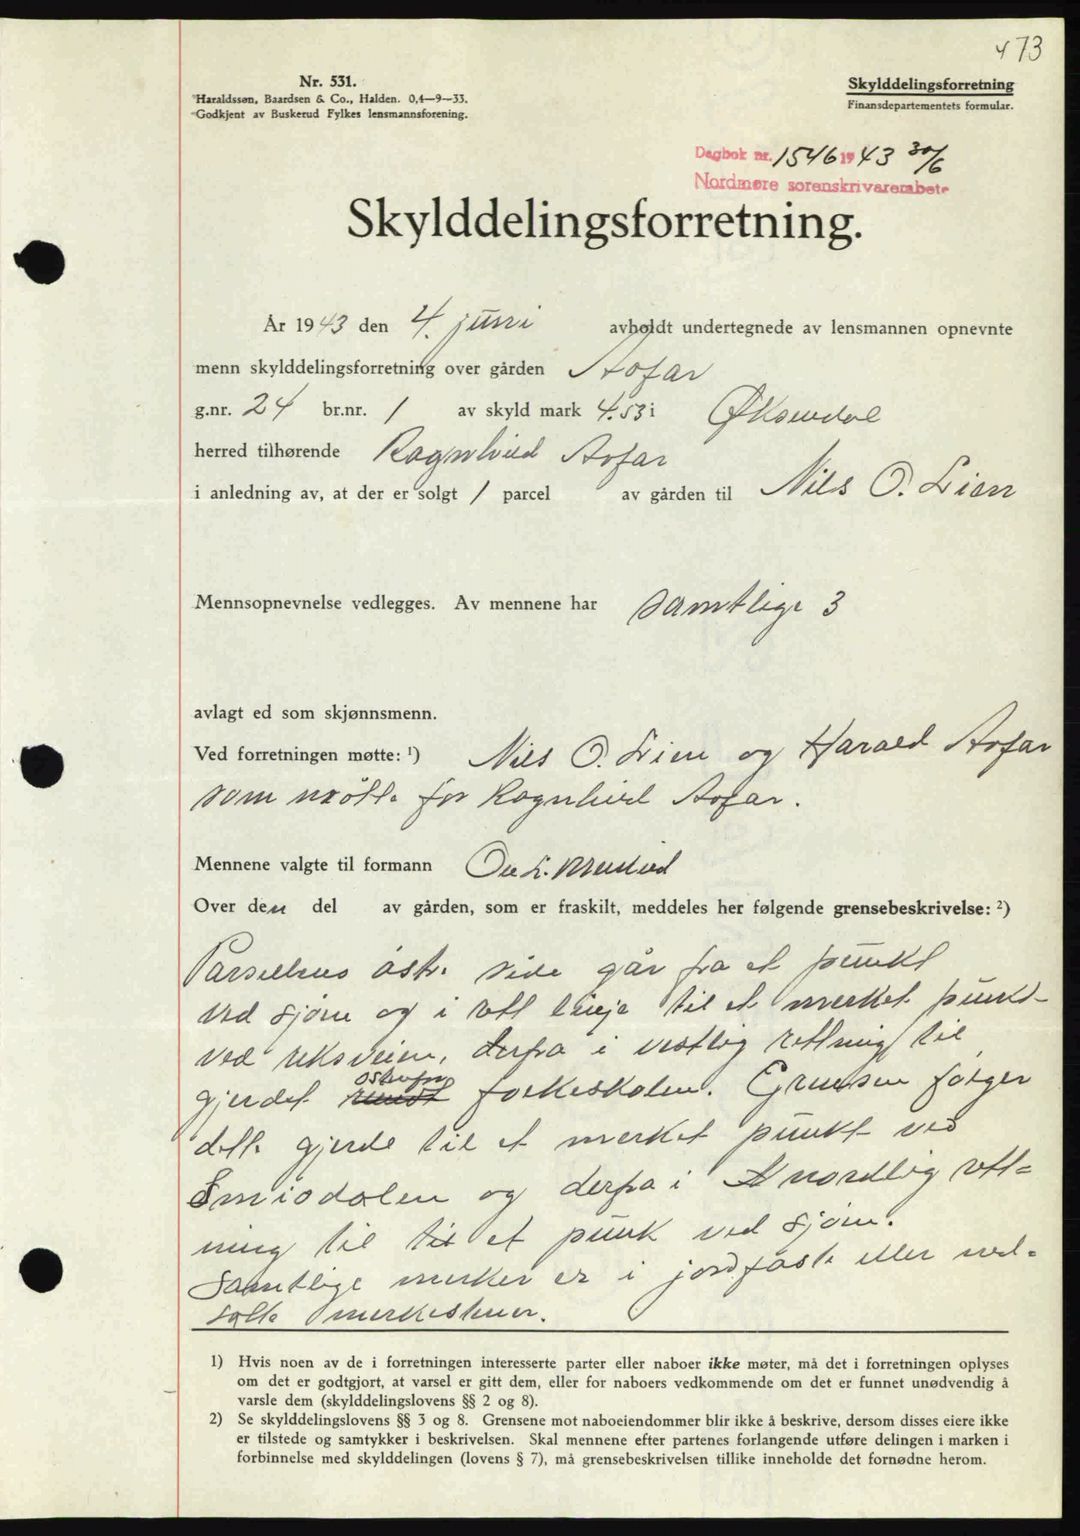 473
Nr. 531.
Haraldssøn, Baardsen & Co., Halden. 0,4—9—33.
Godkjent av Buskerud Fylkes lensmannsforening.
Skylddelingsforretning
Finansdepartementets formular.
Dagbok nr. 1546 1943 30/6
Nordmøre sorenskriverembete
Skylddelingsforretning.
År 1943 den 4. juni avholdt undertegnede av lensmannen opnevnte
menn skylddelingsforretning over gården Aofar
g.nr. 24 br.nr. 1 av skyld mark 4.53 i Øksendal
herred tilhørende Ragnhild Aofar
i anledning av, at der er solgt 1 parcel av gården til Nils O. Lien
Mennsopnevnelse vedlegges. Av mennene har samtlige 3
avlagt ed som skjønnsmenn.
Ved forretningen møtte: ¹) Nils O. Lien og Harald Aofar
som møtte for Ragnhild Aofar.
Mennene valgte til formann O. L.
Over den del av gården, som er fraskilt, meddeles her følgende grensebeskrivelse: ²)
Parsellens østre side går fra et punkt
ved sjøen og i rett linje til et merket punkt
ved riksveien, derfra i vestlig retning til
gjerdet rundt østenfor folkeskolen. Grensen følger
dette gjerde til et merket punkt ved
Smiodalen og derfra i nordlig ret=
ning til til et punk ved sjøen.
Samtlige merker er i jordfaste eller ned=
satte merkestener.
1) Hvis noen av de i forretningen interesserte parter eller naboer ikke møter, må det i forretningen oplyses
om det er godtgjort, at varsel er gitt dem, eller for naboers vedkommende om det er funnet unødvendig å
varsle dem (skylddelingslovens §§ 2 og 8).
2) Se skylddelingslovens §§ 3 og 8. Grensene mot naboeiendommer blir ikke å beskrive, dersom disses eiere ikke
er tilstede og samtykker i beskrivelsen. Skal mennene efter partenes forlangende utføre delingen i marken i
forbinnelse med skylddelingen (lovens § 7), må grensebeskrivelsen tillike inneholde det fornødne herom.